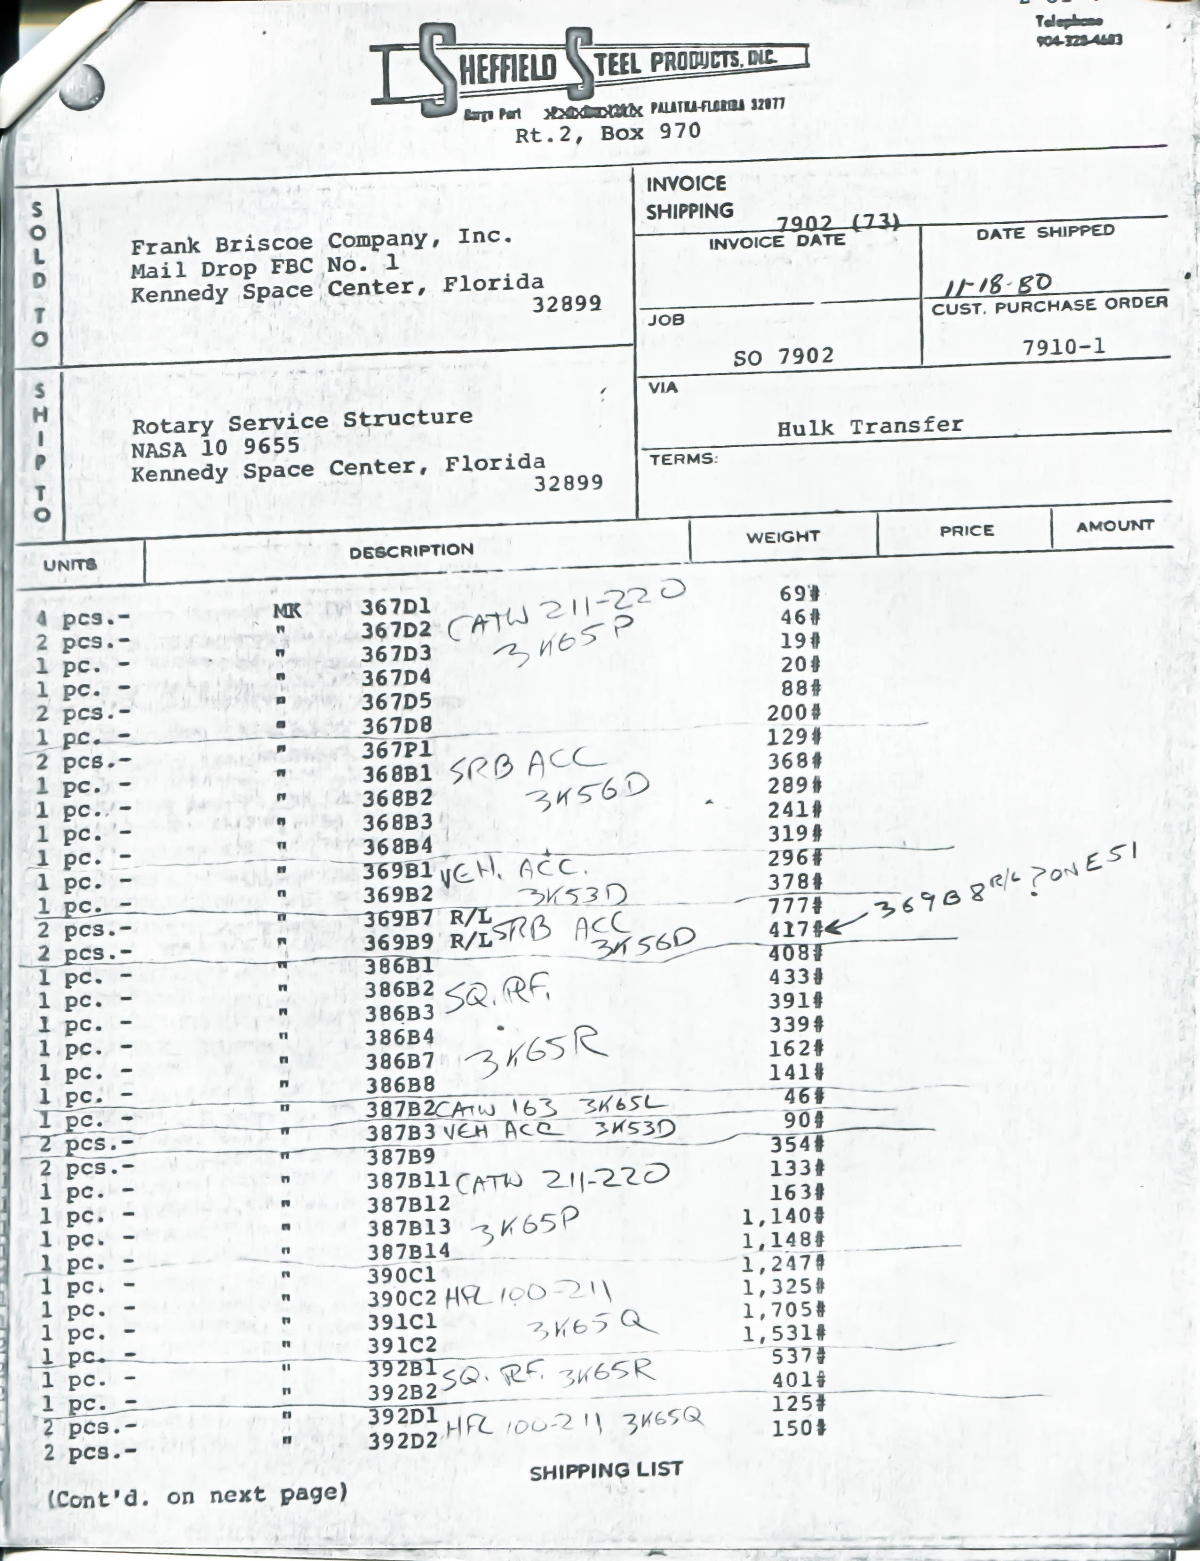 Telephone
904-328-4683
SHEFFIELD STEEL PRODUCTS, INC.
Barge Port PALATKA-FLORIDA 32077
Rt.2, Box 970
SOLD TO
Frank Briscoe Company, Inc.
Mail Drop FBC No. 1
Kennedy Space Center, Florida
32899
INVOICE
SHIPPING 7902 (73)
INVOICE DATE
DATE SHIPPED
11-18-80
JOB
SO 7902
CUST. PURCHASE ORDER
7910-1
SHIP TO
Rotary Service Structure
NASA 10 9655
Kennedy Space Center, Florida
32899
VIA
Hulk Transfer
TERMS:
UNITS DESCRIPTION WEIGHT PRICE AMOUNT
4 pcs.- MK 367D1 CATW 211-220 69#
2 pcs.- " 367D2 3K65P 46#
1 pc. - " 367D3 19#
1 pc. - " 367D4 20#
2 pcs.- " 367D5 88#
1 pc. - " 367D8 200#
2 pcs.- " 367P1 129#
1 pc. - " 368B1 SRB ACC 368#
1 pc. - " 368B2 3K56D 289#
1 pc. - " 368B3 241#
1 pc. - " 368B4 319#
1 pc. - " 369B1 VEH. ACC. 296#
1 pc. - " 369B2 3K53D 378#
2 pcs.- " 369B7 R/L SRB ACC 777#
2 pcs.- " 369B9 R/L 3K56D 417# ← 369B8 R/L ? ON E51
1 pc. - " 386B1 408#
1 pc. - " 386B2 SQ. RF. 433#
1 pc. - " 386B3 391#
1 pc. - " 386B4 3K65R 339#
1 pc. - " 386B7 162#
1 pc. - " 386B8 141#
1 pc. - " 387B2 CATW 163 3K65L 46#
2 pcs.- " 387B3 VEH ACC 3K53D 90#
2 pcs.- " 387B9 354#
1 pc. - " 387B11 CATW 211-220 133#
1 pc. - " 387B12 163#
1 pc. - " 387B13 3K65P 1,140#
1 pc. - " 387B14 1,148#
1 pc. - " 390C1 1,247#
1 pc. - " 390C2 HFL 100-211 1,325#
1 pc. - " 391C1 3K65Q 1,705#
1 pc. - " 391C2 1,531#
1 pc. - " 392B1 SQ. RF. 3K65R 537#
1 pc. - " 392B2 401#
2 pcs.- " 392D1 HFL 100-211 3K65Q 125#
2 pcs.- " 392D2 150#
SHIPPING LIST
(Cont'd. on next page)